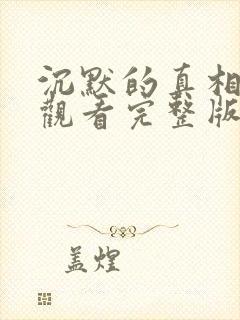 沉默的真相
觀看完整版
盖煌